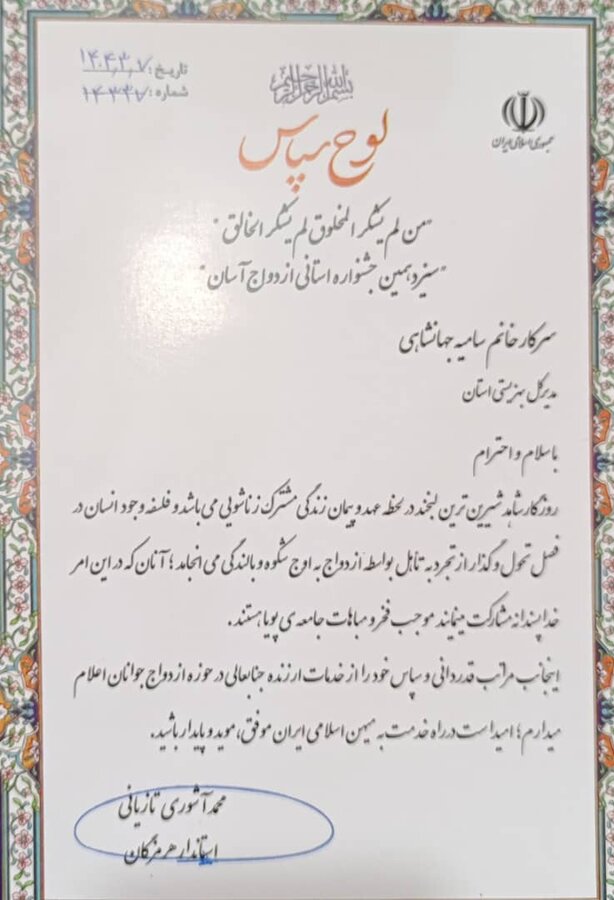 بسم الله الرحمن الرحیم
جمهوری اسلامی ایران
تاریخ: ۱۴۰۴,۳,۷
شماره: ۱۴۳۳۷
لوح سپاس
"من لم یشکر المخلوق لم یشکر الخالق"
"سیزدهمین جشنواره استانی ازدواج آسان"
سرکار خانم سامیه جهانشاهی
مدیرکل بهزیستی استان
باسلام و احترام
روزگار شاهد شیرین ترین لبخند در لحظه عهد و پیمان زندگی مشترک زناشویی می باشد و فلسفه وجود انسان در
فصل تحول و گذار از تجرد به تأهل بواسطه ازدواج به اوج شکوه و بالندگی می انجامد؛ آنان که در این امر
خداپسندانه مشارکت مینمایند موجب فخر و مباهات جامعه ی پویا هستند.
اینجانب مراتب قدردانی و سپاس خود را از خدمات ارزنده جنابعالی در حوزه ازدواج جوانان اعلام
میدارم؛ امید است در راه خدمت به میهن اسلامی ایران موفق، موید و پایدار باشید.
محمد آشوری تازیانی
استاندار هرمزگان